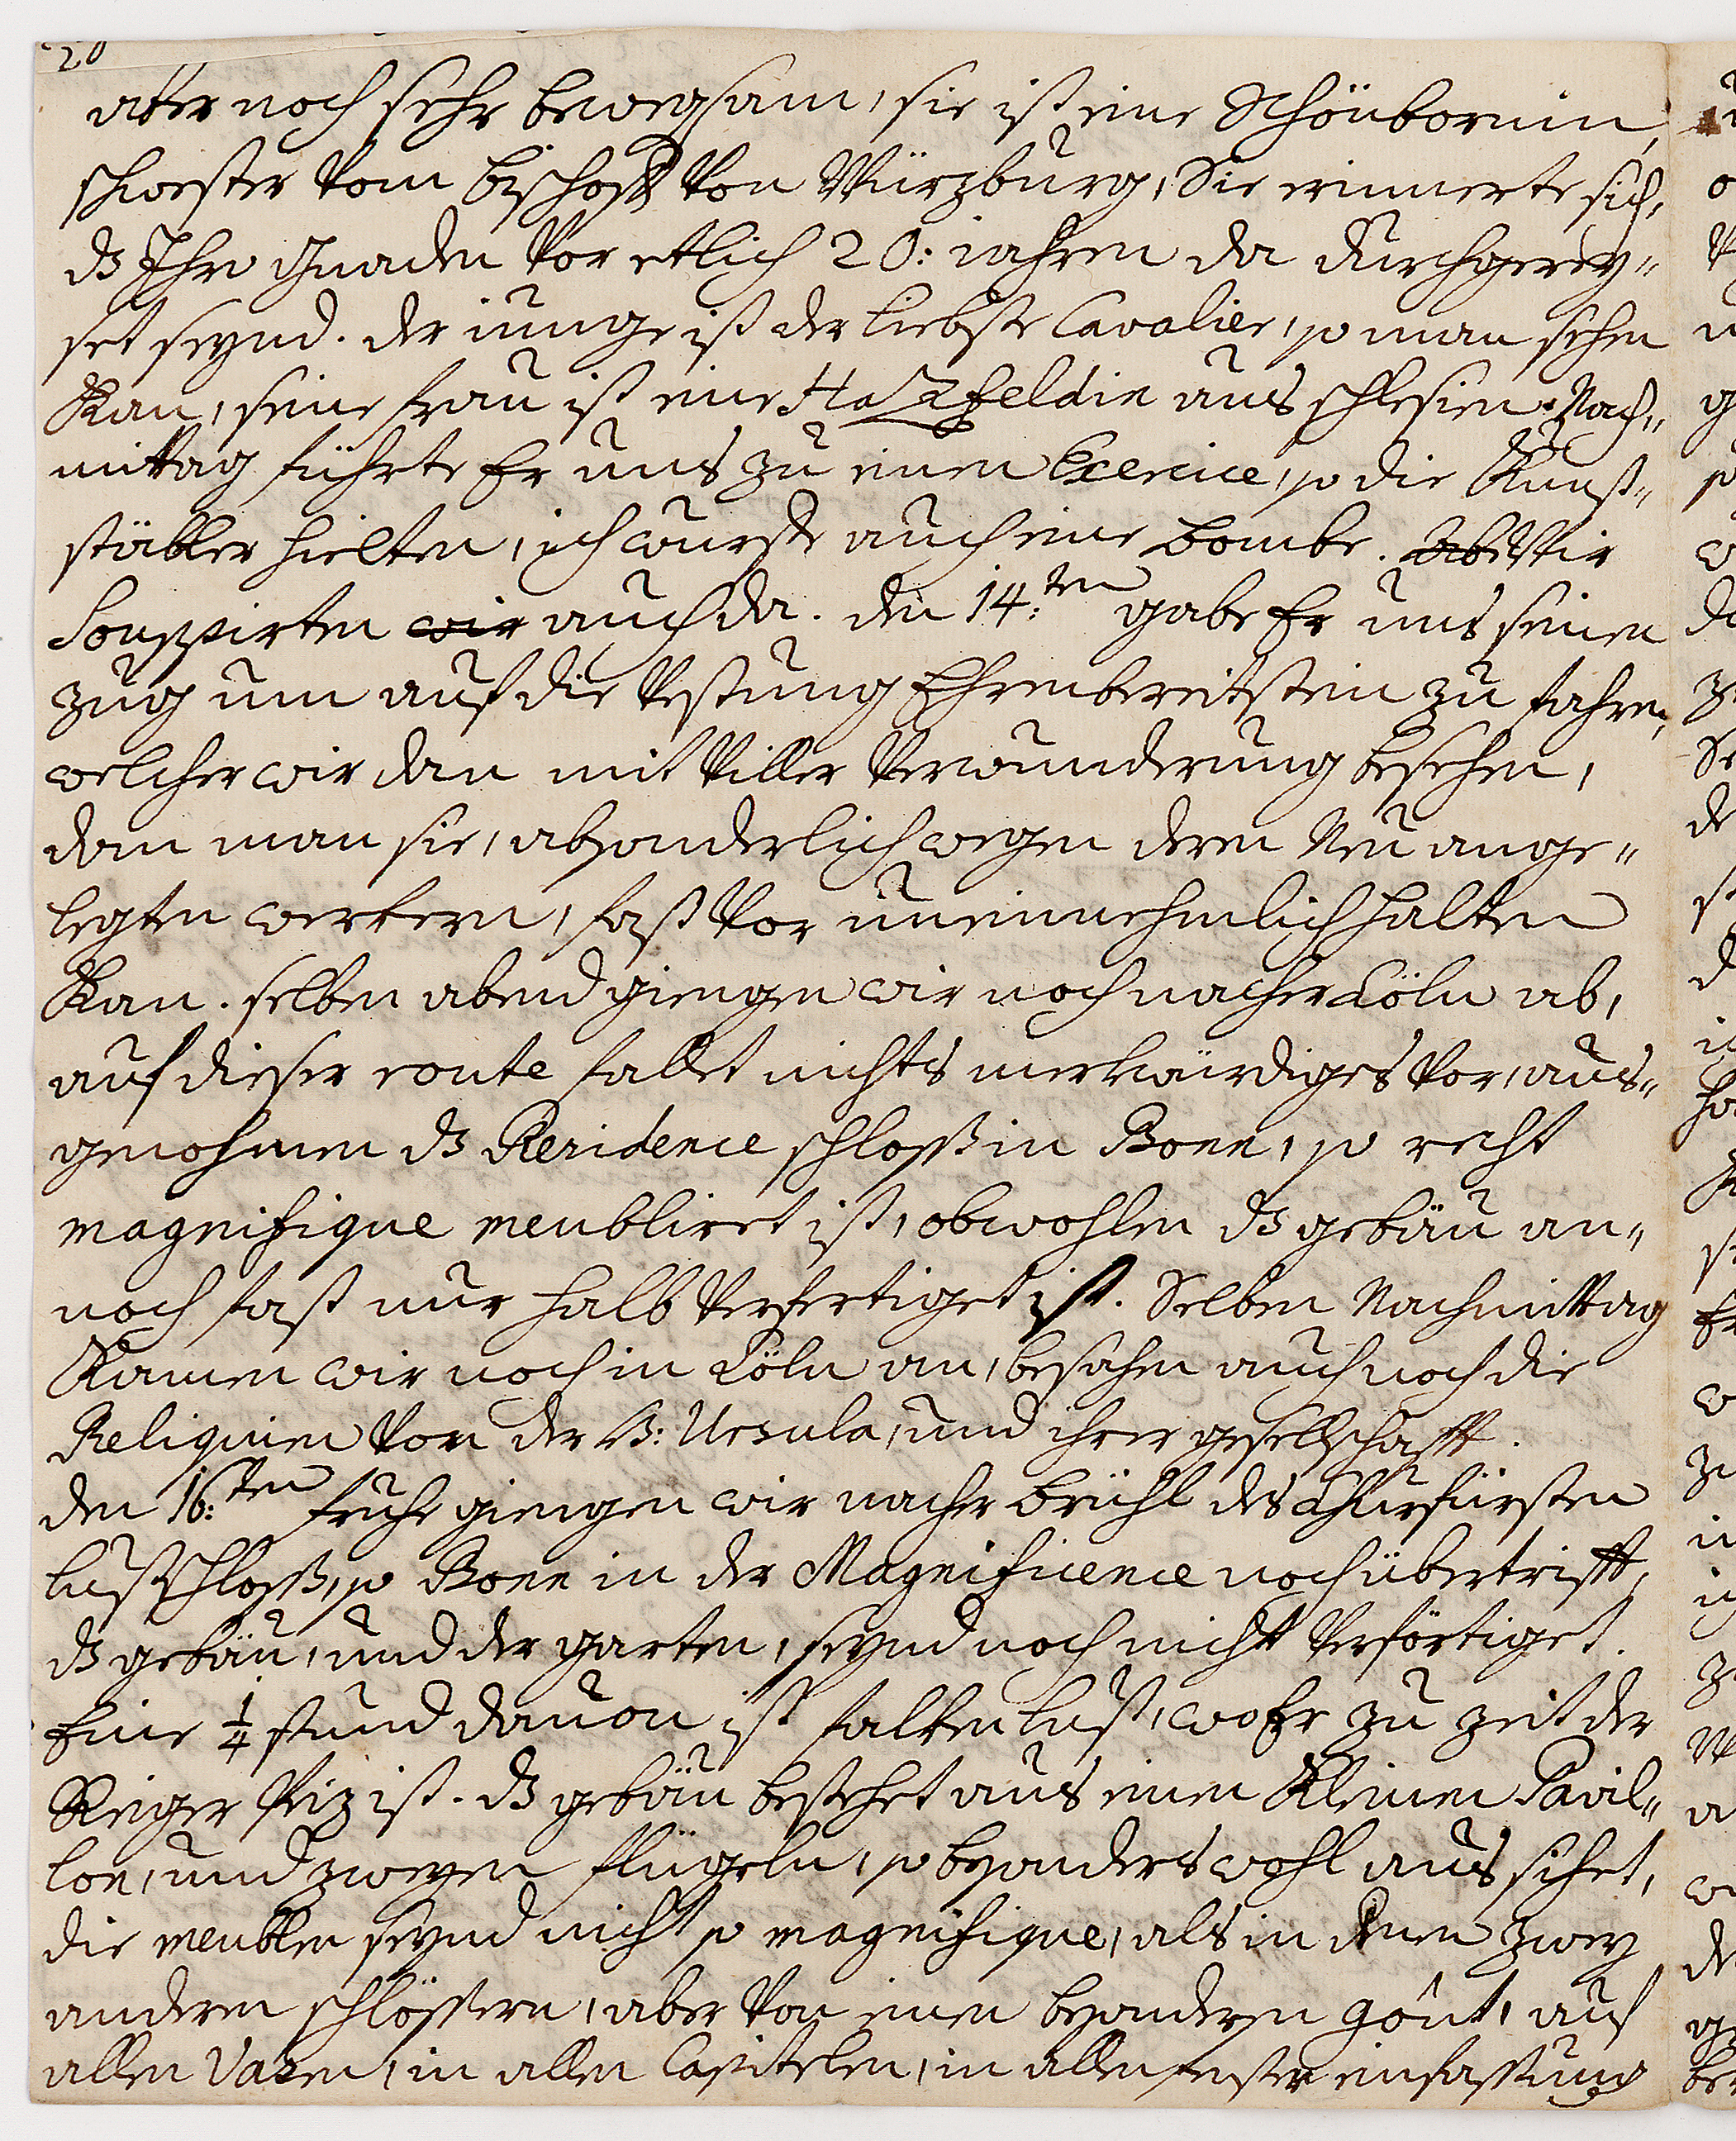 20
aber noch sehr bewegsam, sie ist eine Schönbornin,
schwester vom bischoff von Würzburg, Sie erinnerte sich,
dz Ihro Gnaden vor etlich 20: iahren da durchgerey„
set seynd. der iunge ist der liebste Cavalier, so man sehen
kan, seine frau ist eine Hatzfeldin aus schlesien. Nach„
mittag führte Er uns zu einen Exercice, so die Kunst„
stäbler hielten, ich wurffe auch eine bombe. Wir
Souppirten wir auch da. den 14:ten gabe Er uns seinen
zug um auf die Vestung Ehrenbereitstein zu fahren,
welcher wir dan mit viller Verwunderung besehen,
dan man sie, absonderlich wegen deren Neu ange„
legten werkern, fast vor uneinnehmlich halten
kan. selben abend giengen wir noch nacher Cöln ab,
auf dieser route fallet nichts merkwürdiges vor, aus„
genohmen dz Residence schloß in Bonn, so recht
magnifique meubliret ist, obwohlen dz gebäu an„
noch fast nur halb verfertiget ist. Selben Nachmittag
kamen wir noch in Cöln an, besahen auch noch die
Reliquien von der H: Ursula, und ihrer gesellschafft.
den 16:ten frühe giengen wir nacher brühl des Churfürsten
lustschloß, so Bonn in der Magnificence noch übertrifft,
dz gebäu, und der garten, seynd noch nicht verförtiget.
Eine 1/4 stund davon ist falkenlust, wo Er zu zeit der
Reiger beiz ist. dz gebäu bestehet aus einen kleinen Pavil„
lon, und zweyen flügeln, so besonders wohl aus sihet,
die meublen seynd nicht so magnifique, als in denen zwey
anderen schlössern, aber von einen besonderen goût, auf
allen Vasen, in allen Capitelen, in allen fenster einfassung